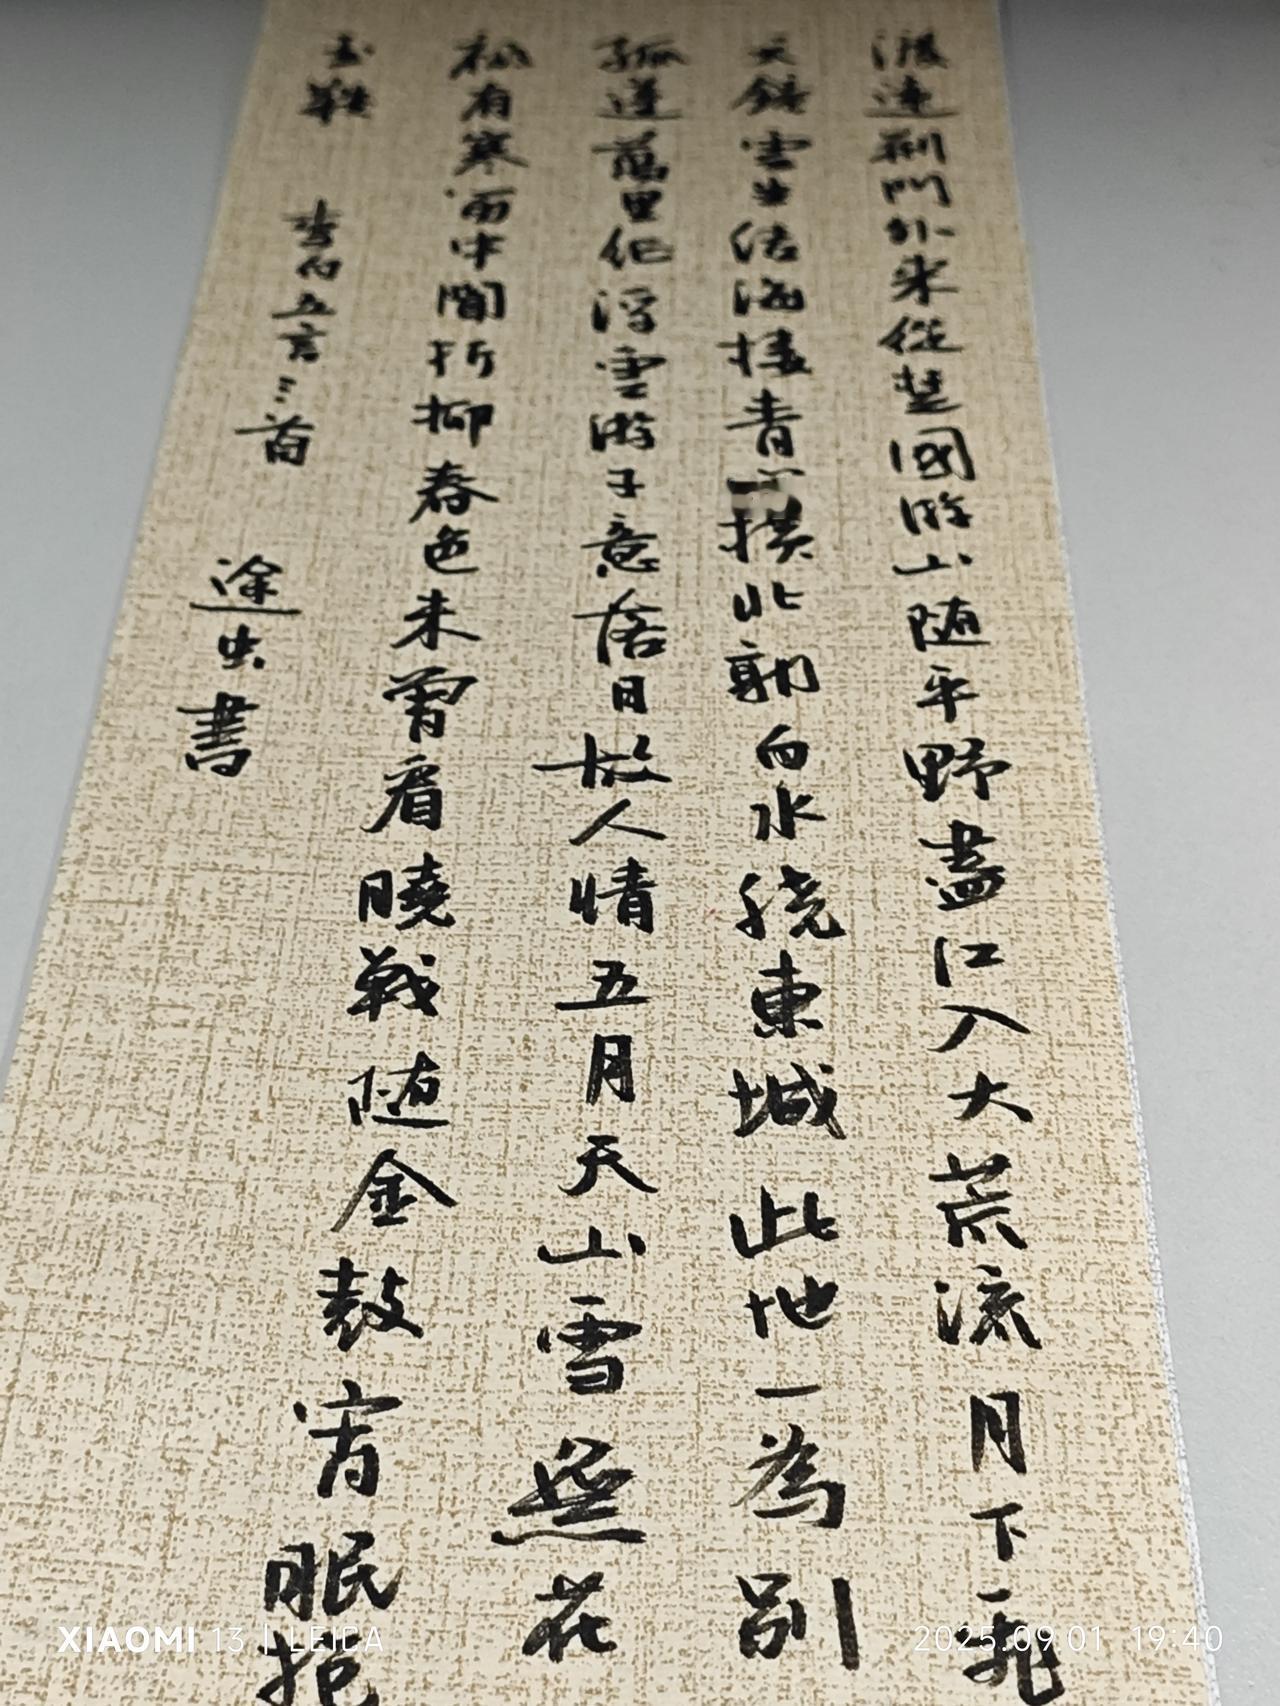 渡遠荆門外来從楚國游山随平野盡江入大荒流月下飛
天鏡雲生结海樓青横北郭白水绕東城此地一為别
孤蓬萬里征浮雲游子意落日故人情五月天山雪無花
祗有寒笛中聞折柳春色未曾看曉戰随金鼓宵眠抱
玉鞍 李白五言三首 途虫書
XIAOMI 13 | LEICA
2025.09.01 19:40